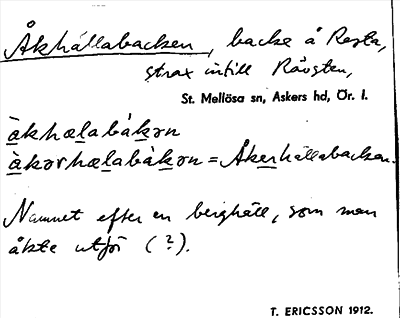 Åkhällabacken, backe å Resta,
strax intill Rävsten,
St. Mellösa sn, Askers hd, Ör. l.
àkhælabàkən
àkərhælabàkən = Åkerhällabacken.
Namnet efter en berghäll, som man
åkte utför (?).
T. ERICSSON 1912.